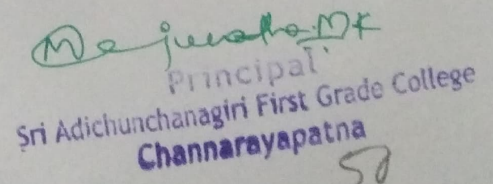 Manjunatha M K
Principal
Sri Adichunchanagiri First Grade College
Channarayapatna